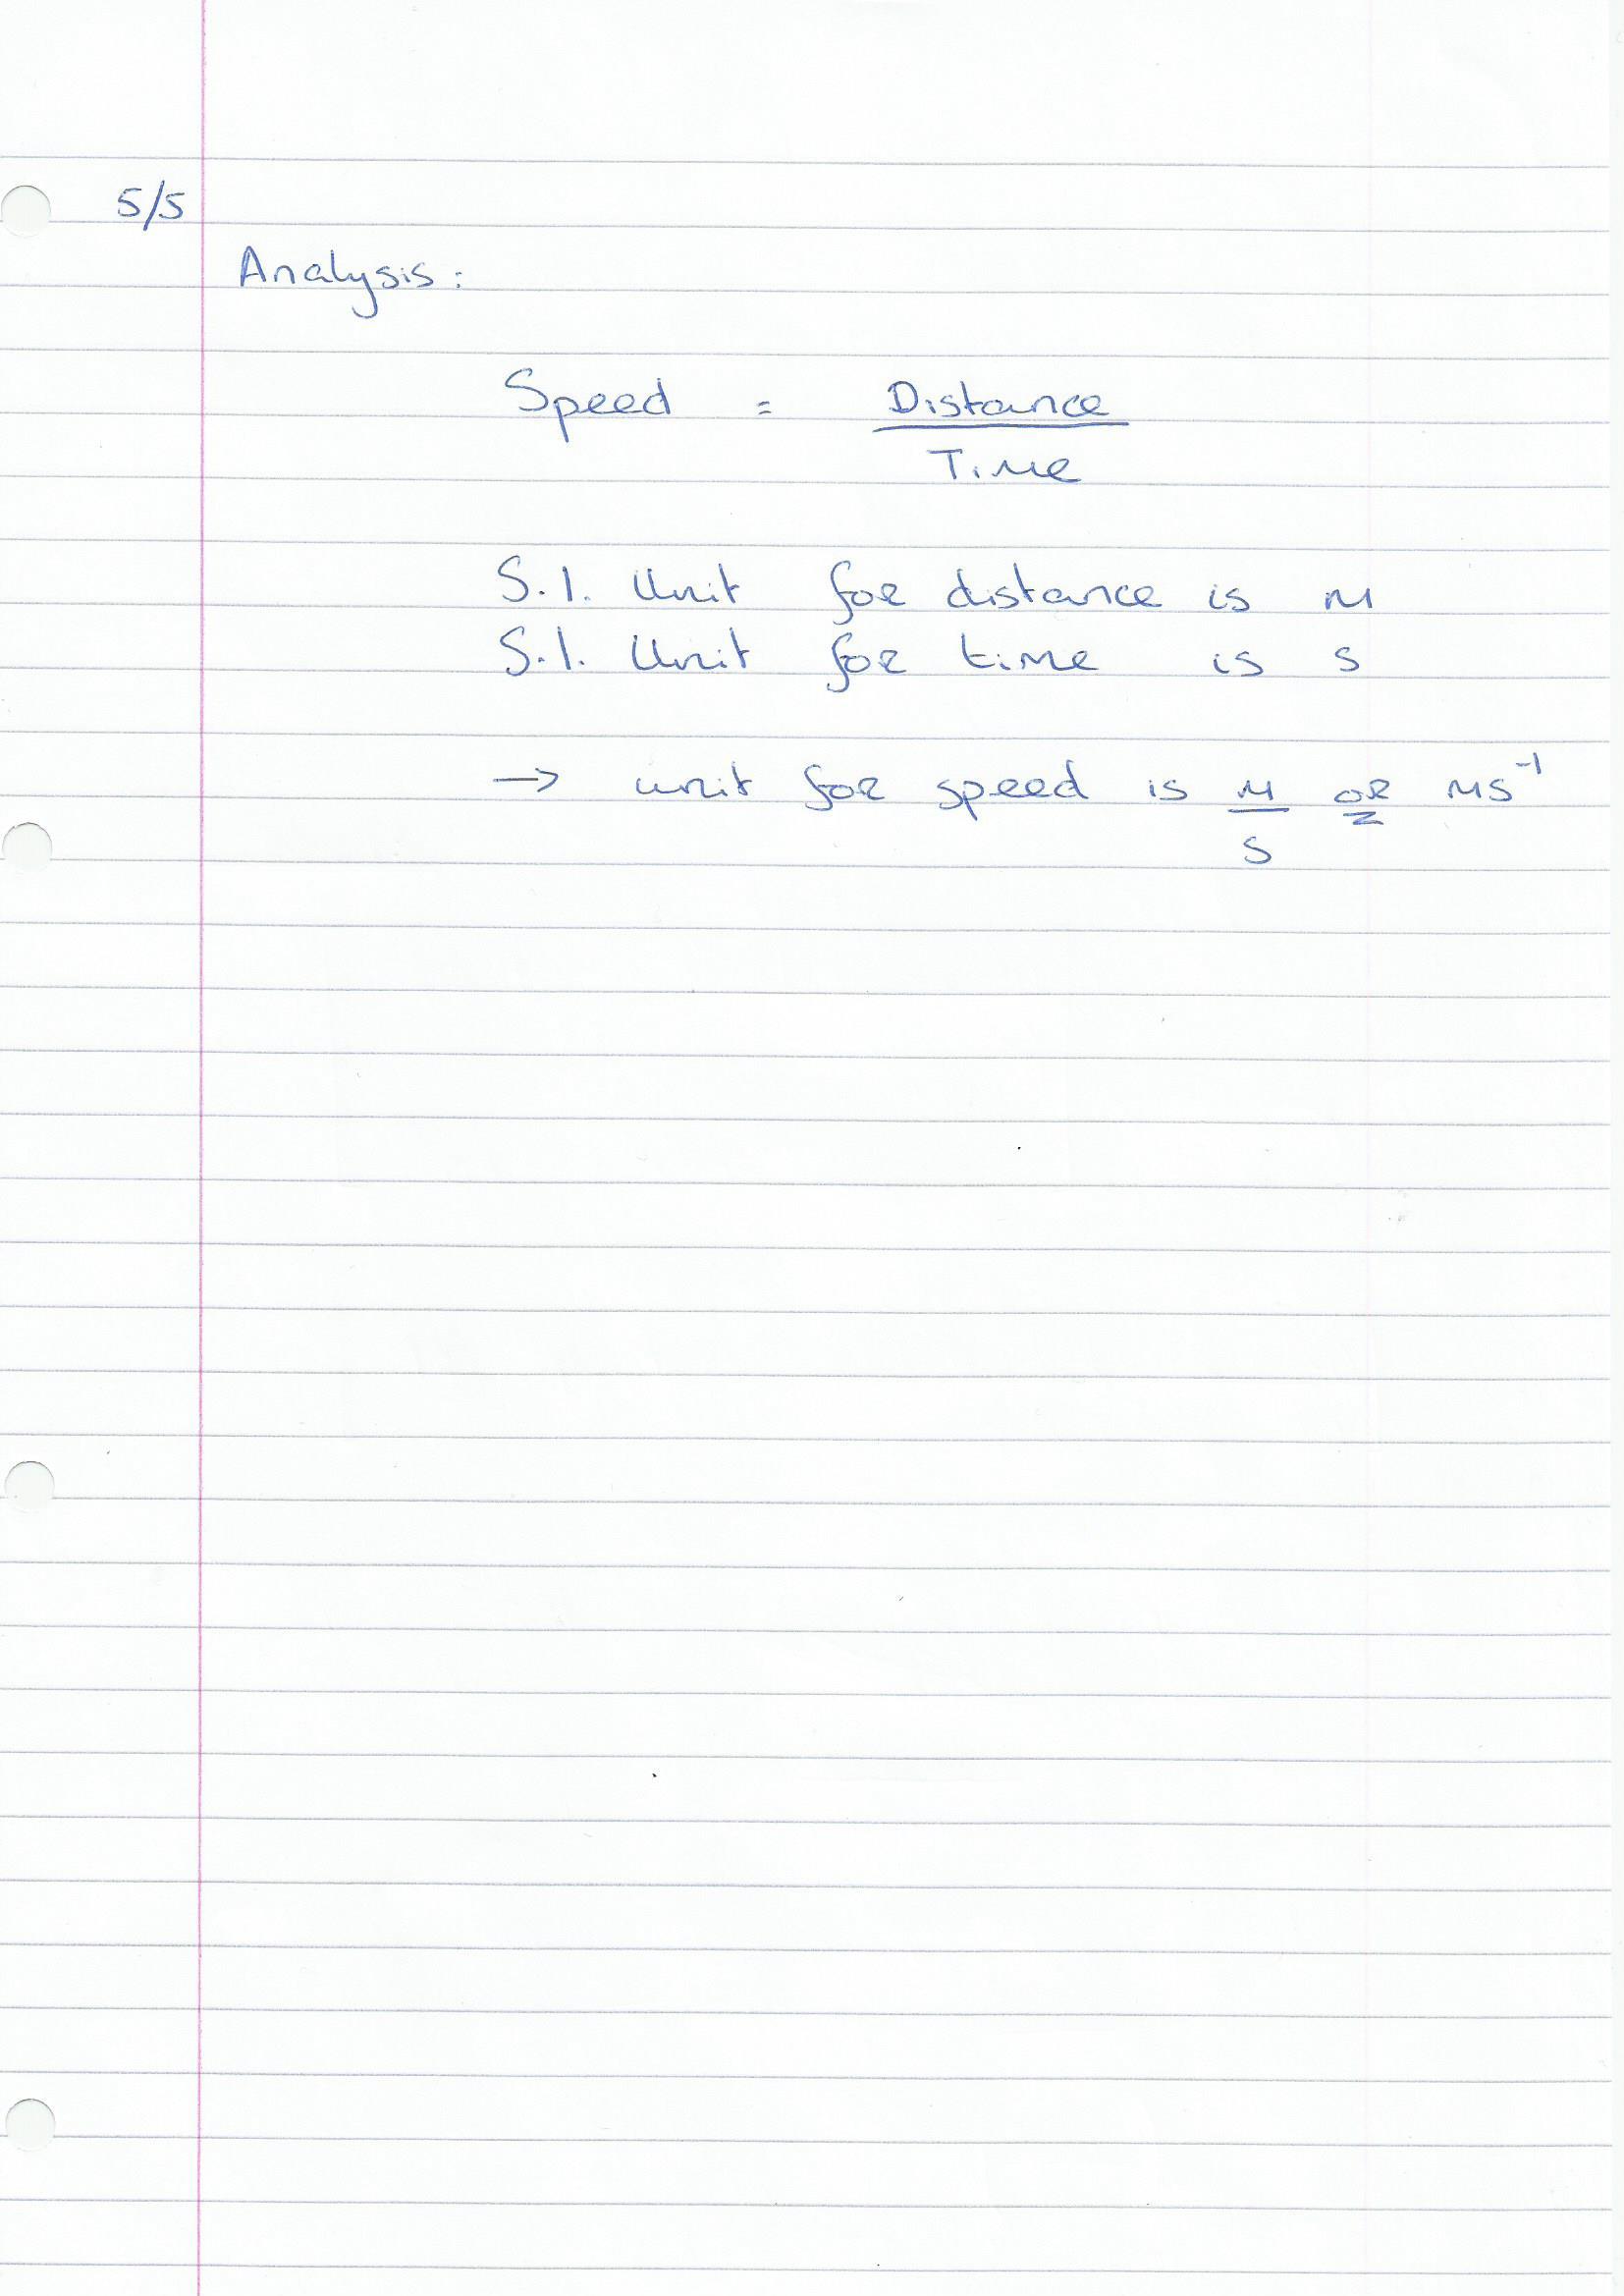 5/5
Analysis:
Speed = Distance
Time
S.I. Unit for distance is m
S.I. Unit for time is s
→ unit for speed is m or ms⁻¹
s